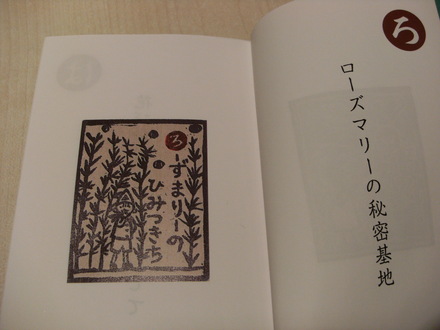 ろ
ローズマリーの秘密基地
ろーずまりーの
ひみつきち